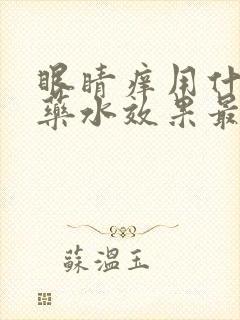 眼睛痒用什
藥水效果最
蘇溫玉